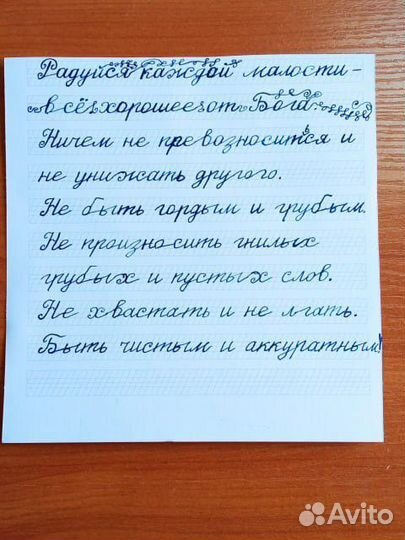 Радуйся каждой малости -
всё хорошее от Бога
Ничем не превозноситься и
не унижать другого.
Не быть гордым и грубым.
Не произносить гнилых
грубых и пустых слов.
Не хвастать и не лгать.
Быть чистым и аккуратным!
Avito